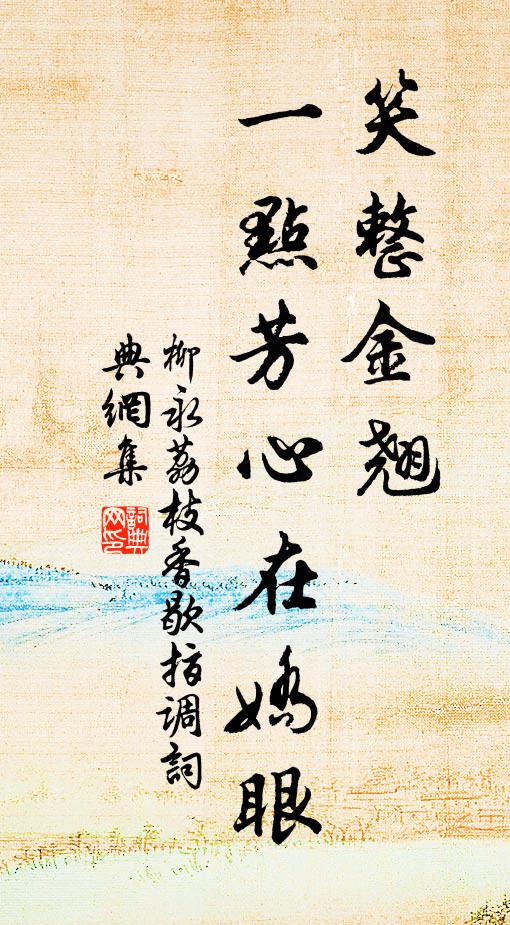 笑整金翹
一點芳心在嬌眼
柳永荔枝香歇指調詞
典網集
詞典网印